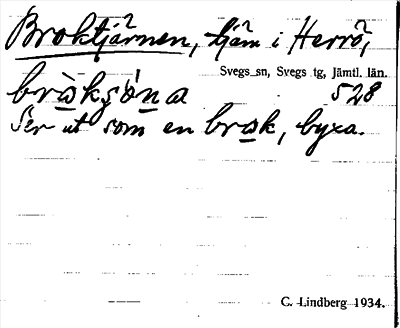 Broktjärnen, tjärn i Herrö,
Svegs sn, Svegs tg, Jämtl. län.
528
Ser ut som en brok, byxa.
C. Lindberg 1934.